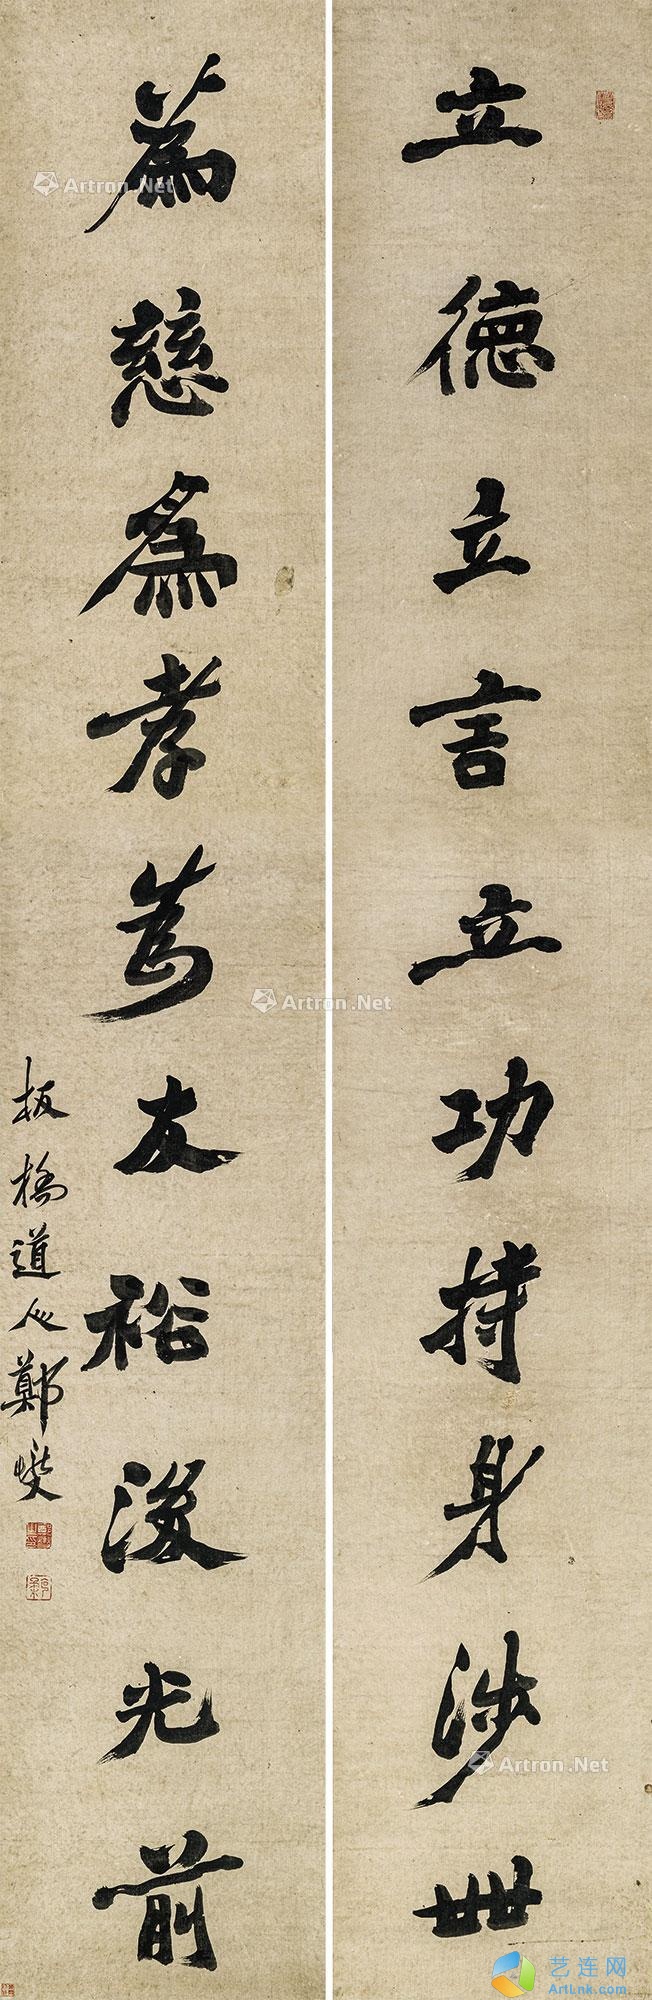 立德立言立功持身涉世
為慈為孝為友裕後光前
板橋道人鄭燮
Artron.Net
Artron.Net
Artron.Net
艺连网
ArtLnk.Com